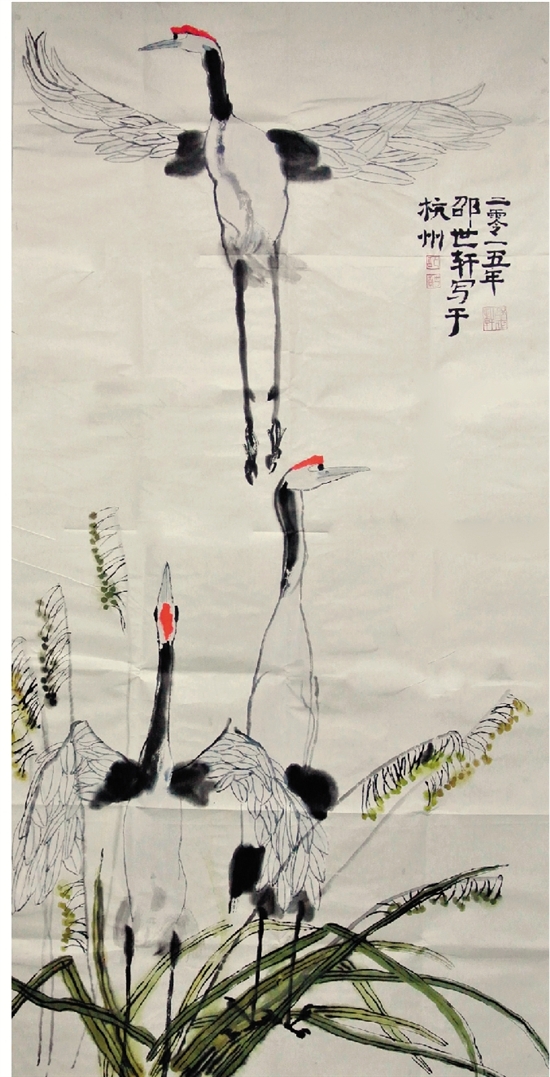 二零一五年
邵世轩写于
杭州